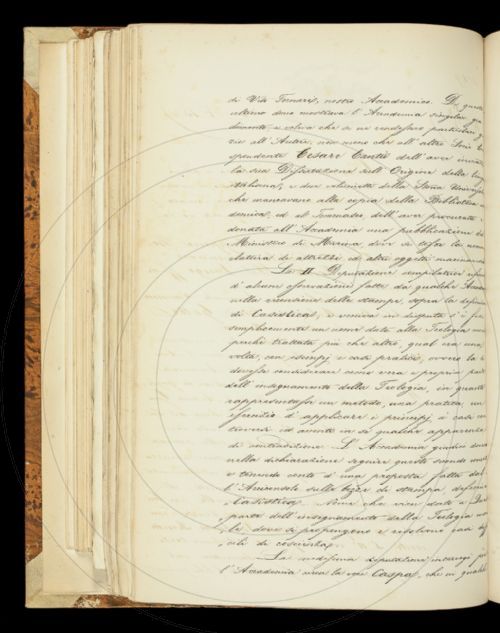 di Vito Fornari, nostro Accademico. Di quest
ultimo dono mostrava l'Accademia singolar gra
dimento, e voleva che se ne rendessero particolari g
zie all'Autore, non meno che all'altro Socio
spondente Cesare Cantù dell'aver inviato
la sua Dissertazione sull'Origine della ling
italiana, e due volumetti della Storia Univers
che mancavano alla copia della Biblioteca
demica, ed al Tommaseo dell'aver procurato
donata all'Accademia una pubblicazione
Ministero di Marina dove si tesse la nomen
clatura di attrezzi ed altri oggetti marinareschi
La II Deputazione compilatrice
d'alcune osservazioni fatte da qualche Accad
nella revisione delle stampe, sopra la definizione
di Casistica, e veniva in disputa s'è
semplicemente un nome dato alla Teologia mo
perchè trattata più che altro, qual era una
volta, con esempj e casi pratici, ovvero la
devesse considerare come vera e propria parte
dell'insegnamento della Teologia, in quanto
rappresentasse un metodo, una pratica, un
esercizio d'applicare i principj a casi con
troversi ed aventi in se qualche apparenza
di contradizione. L'Accademia giudicò dover
nella dichiarazione seguire questo secondo
e tenendo conto d'una proposta fatta dal
l'Arciconsolo sulla bozza di stampa definiva
Casistica. Nome che vien dato a quella
parte dell'insegnamento della Teologia mo
le dove si propongono e risolvono casi dif
cili di coscienza.
La medesima deputazione interrogò poi
l'Accademia circa la voce Caspa, che in qualche